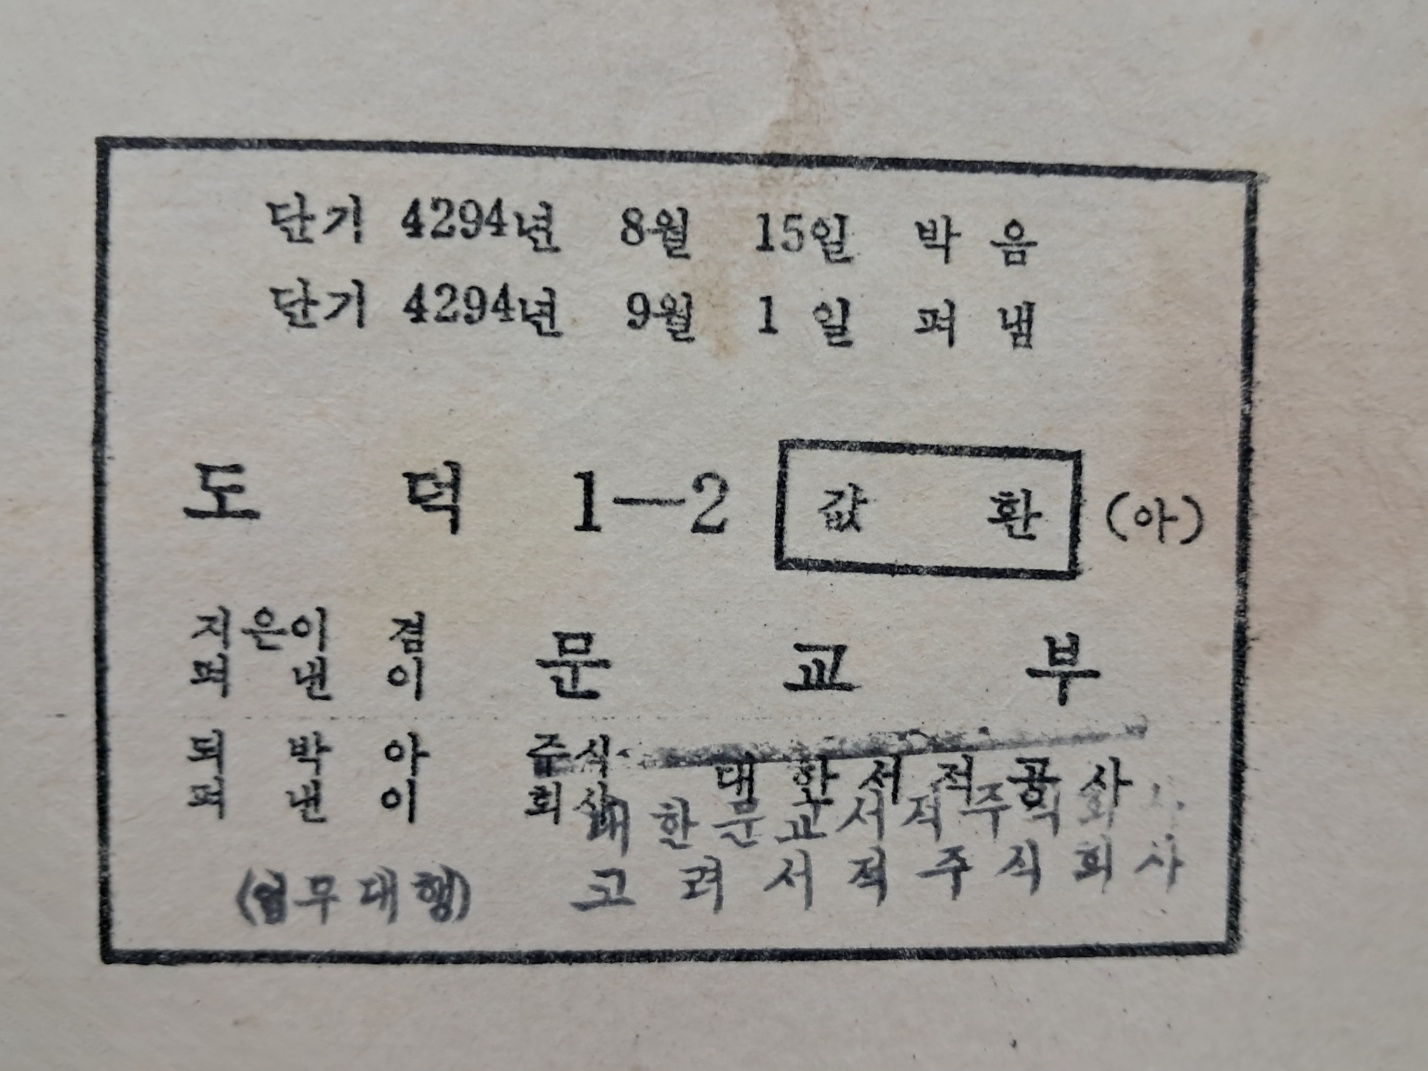 단기 4294년 8월 15일 박음
단기 4294년 9월 1일 펴냄
도덕 1—2 값 환 (아)
지은이 겸
펴낸이 문교부
되박아
펴낸이 주식회사 대한서적공사
대한문교서적주식회사
(업무대행) 고려서적주식회사